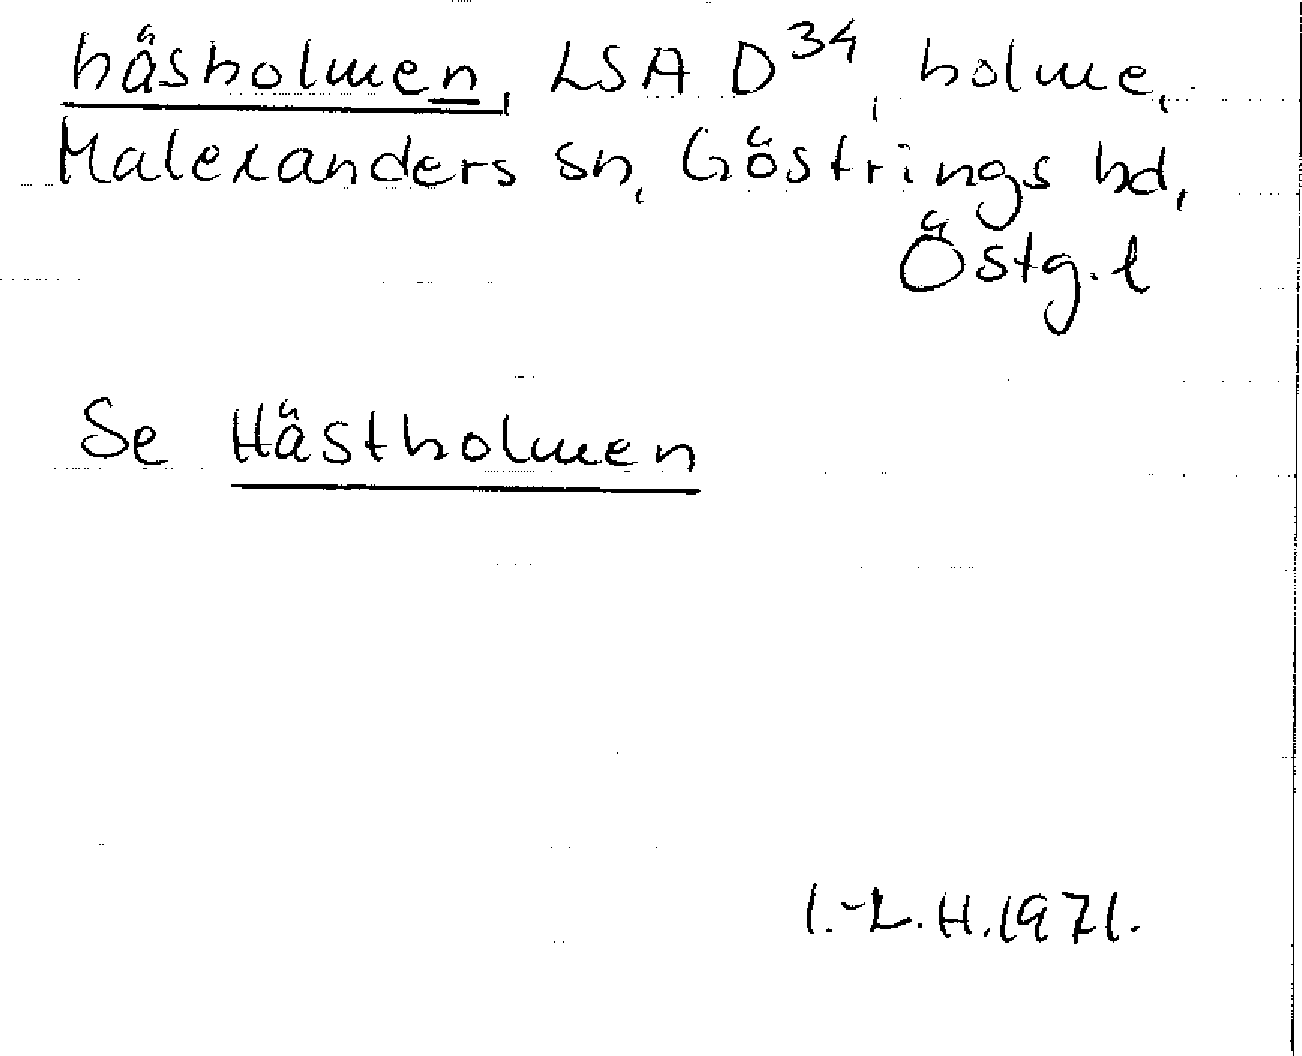 häsholmen, LSA D34, holme,
Malexanders sn, Göstrings hd,
Östg.l
Se Hästholmen
I.-L.H.1971.